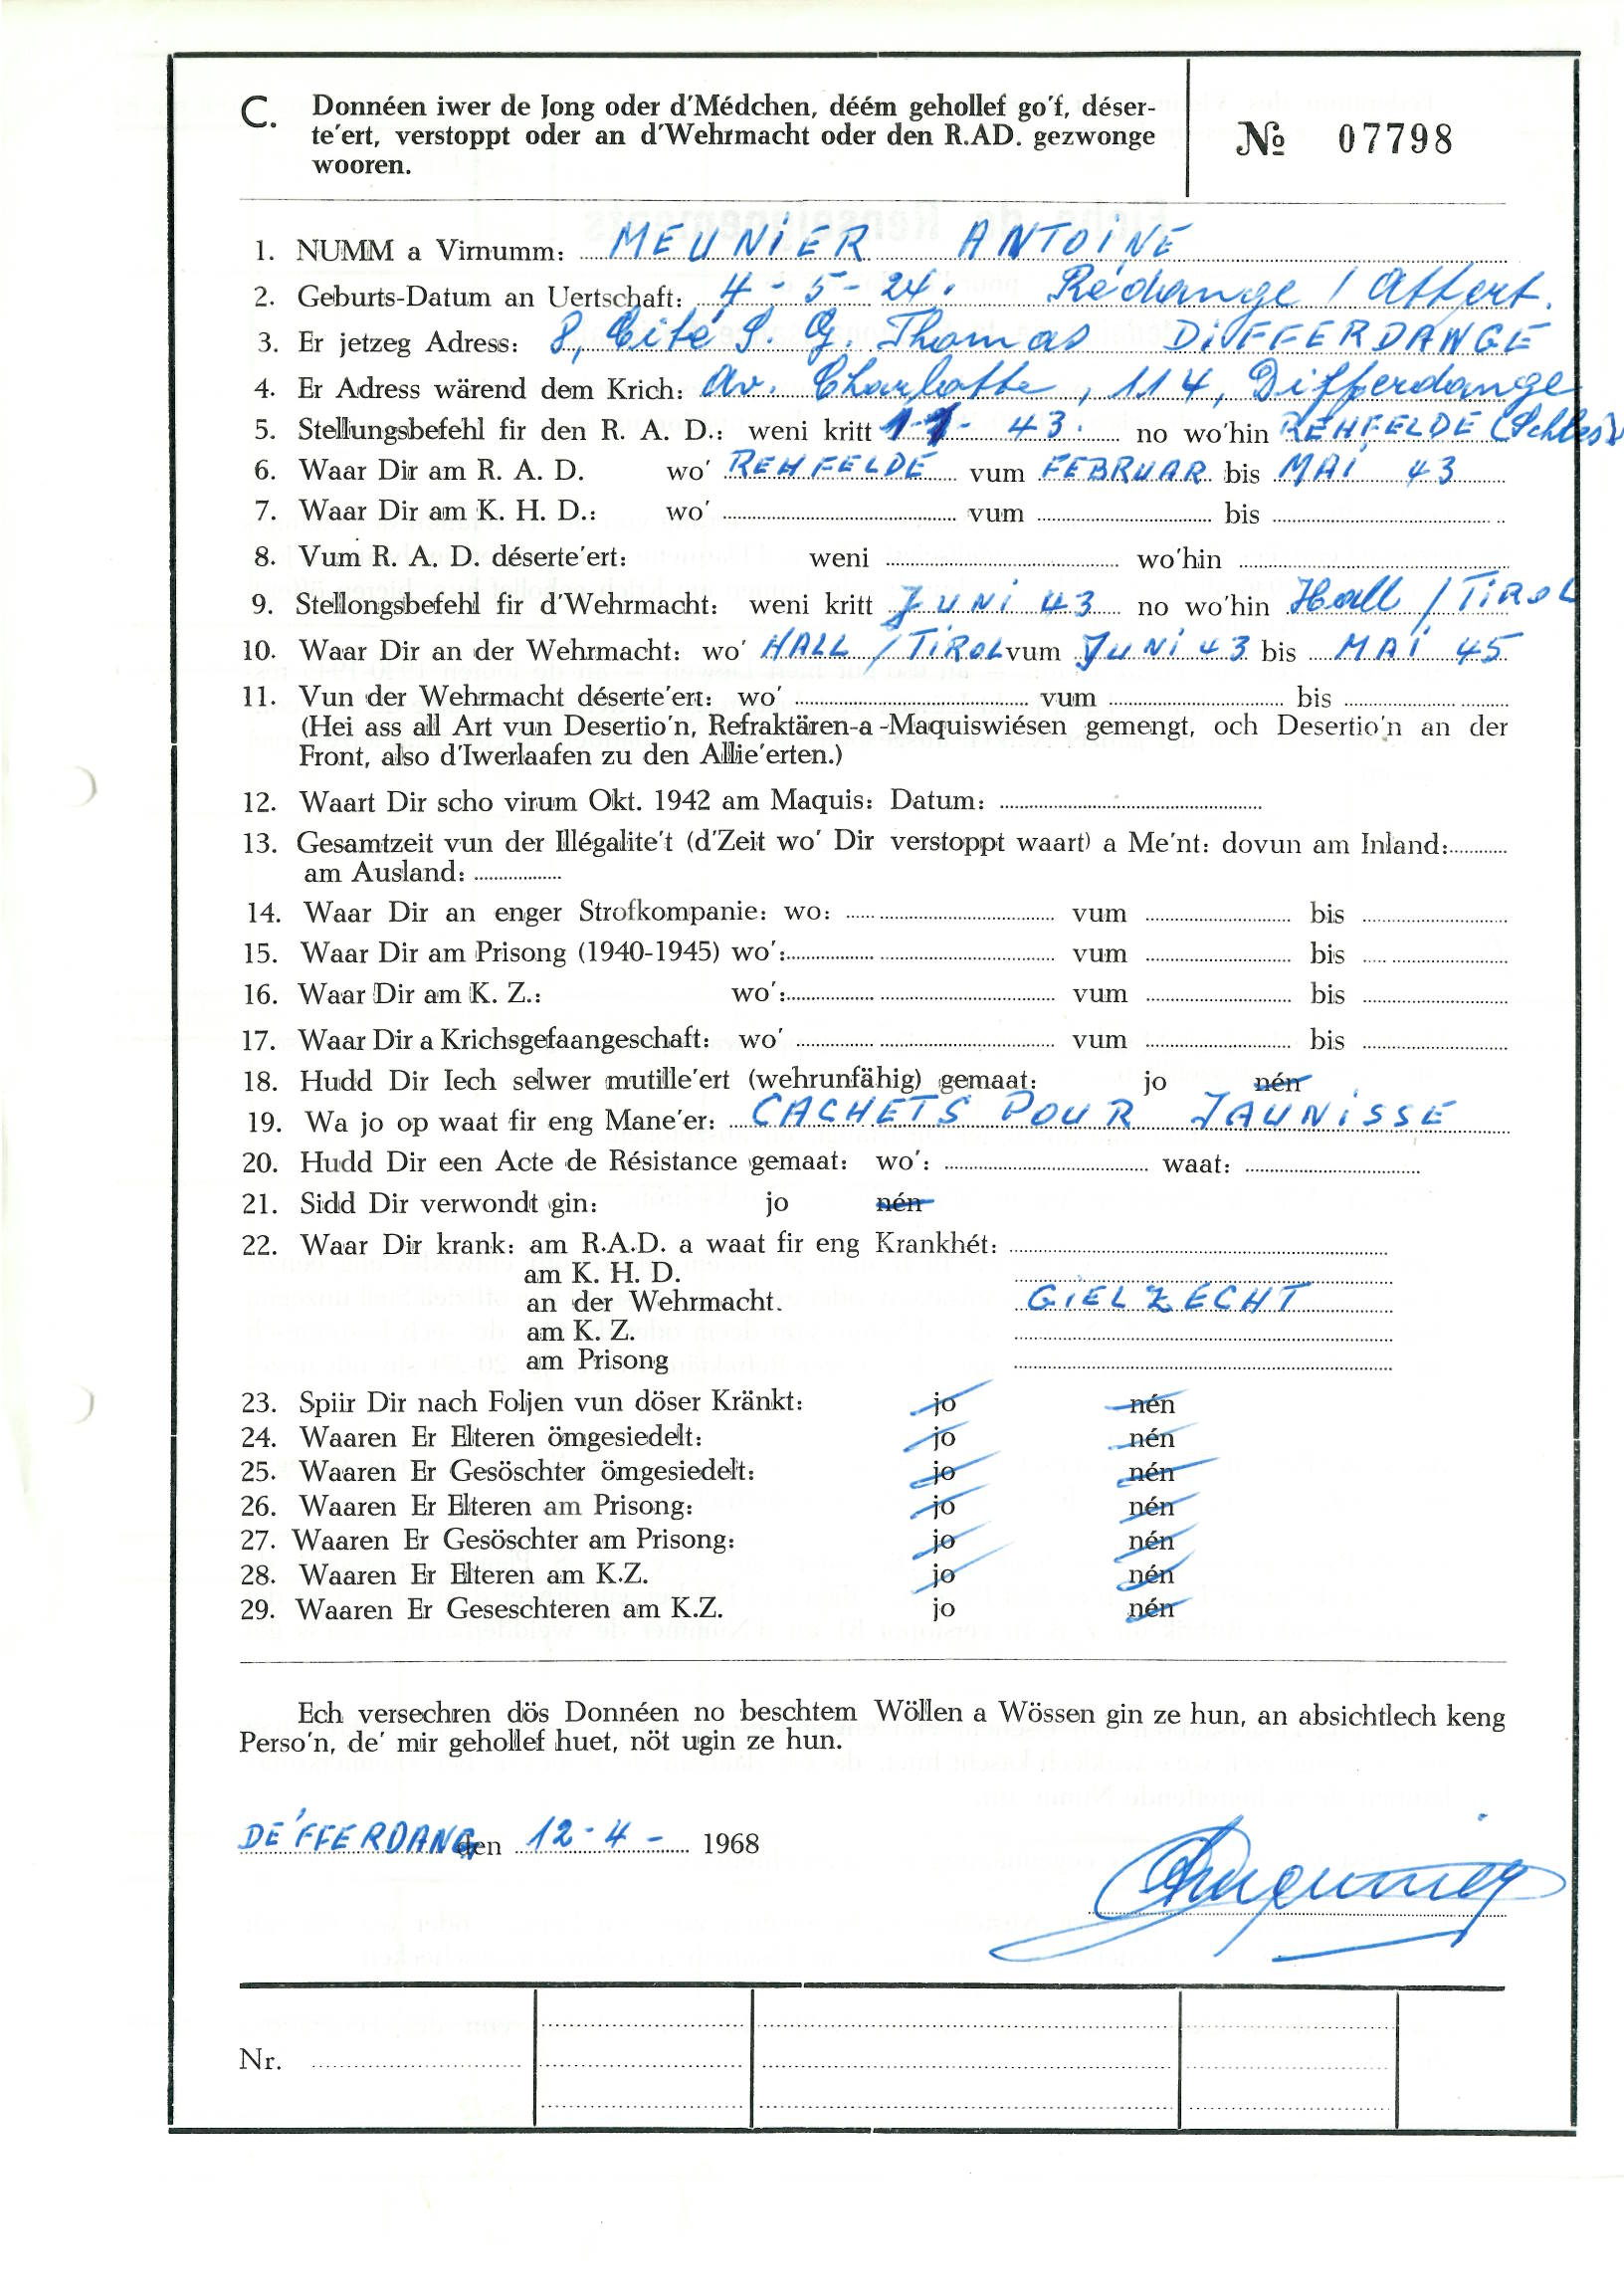 C. Donnéen iwer de Jong oder d'Médchen, déém gehollef go'f, déser-
te'ert, verstoppt oder an d'Wehrmacht oder den R.AD. gezwonge
wooren.
№ 07798
1. NUMM a Virnumm: MEUNIER ANTOINE
2. Geburts-Datum an Uertschaft: 4-5-24. Rédange / Attert.
3. Er jetzeg Adress: 8, Cité S. G. Thomas DIFFERDANGE
4. Er Adress wärend dem Krich: Av. Charlotte, 114, Differdange
5. Stellungsbefehl fir den R. A. D.: weni kritt 1-1-43. no wo'hin REHFELDE (Schles)
6. Waar Dir am R. A. D. wo' REHFELDE vum FEBRUAR bis MAI 43
7. Waar Dir am K. H. D.: wo' vum bis
8. Vum R. A. D. déserte'ert: weni wo'hin
9. Stellongsbefehl fir d'Wehrmacht: weni kritt JUNI 43 no wo'hin Hall / TIROL
10. Waar Dir an der Wehrmacht: wo' HALL / TIROL vum JUNI 43 bis MAI 45
11. Vun der Wehrmacht déserte'ert: wo' vum bis
(Hei ass all Art vun Desertio'n, Refraktären-a-Maquiswiésen gemengt, och Desertio'n an der
Front, also d'Iwerlaafen zu den Allie'erten.)
12. Waart Dir scho virum Okt. 1942 am Maquis: Datum:
13. Gesamtzeit vun der Illégalite't (d'Zeit wo' Dir verstoppt waart) a Me'nt: dovun am Inland:
am Ausland:
14. Waar Dir an enger Strofkompanie: wo: vum bis
15. Waar Dir am Prisong (1940-1945) wo': vum bis
16. Waar Dir am K. Z.: wo': vum bis
17. Waar Dir a Krichsgefaangeschaft: wo' vum bis
18. Hudd Dir Iech selwer mutille'ert (wehrunfähig) gemaat: jo nén
19. Wa jo op waat fir eng Mane'er: CACHETS POUR JAUNISSE
20. Hudd Dir een Acte de Résistance gemaat: wo': waat:
21. Sidd Dir verwondt gin: jo nén
22. Waar Dir krank: am R.A.D. a waat fir eng Krankhét:
am K. H. D.
an der Wehrmacht. GIELZECHT
am K. Z.
am Prisong
23. Spiir Dir nach Foljen vun döser Kränkt: jo nén
24. Waaren Er Elteren ömgesiedelt: jo nén
25. Waaren Er Gesöschter ömgesiedelt: jo nén
26. Waaren Er Elteren am Prisong: jo nén
27. Waaren Er Gesöschter am Prisong: jo nén
28. Waaren Er Elteren am K.Z. jo nén
29. Waaren Er Geseschteren am K.Z. jo nén
Ech versechren dös Donnéen no beschtem Wöllen a Wössen gin ze hun, an absichtlech keng
Perso'n, de' mir gehollef huet, nöt ugin ze hun.
DE'FFERDANG den 12-4- 1968
Nr.